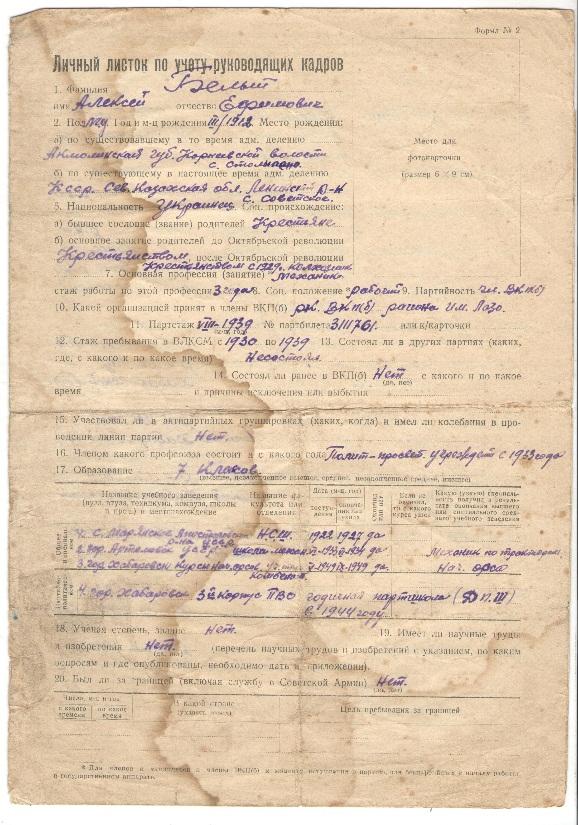 Форма № 2
Личный листок по учету руководящих кадров
1. Фамилия Белыш
имя Алексей отчество Ефимович
2. Пол Муж Год и м-ц рождения III/1912 Место рождения:
а) по существовавшему в то время адм. делению
Акмолинская Губ. Корнеевской волости
с. Столыпино.
б) по существующему в настоящее время адм. делению
КССР. Сев. Казахская обл. Ленинский Р-Н
с. Советское.
Место для
фотокарточки
(размер 6 × 9 см)
5. Национальность Украинец Соц. происхождение:
а) бывшее сословие (звание) родителей Крестьяне
б) основное занятие родителей до Октябрьской революции
Крестьянством после Октябрьской революции
Крестьянством с 1929 г. колхозник
7. Основная профессия (занятие) Механик
стаж работы по этой профессии 3 года 8. Соц. положение рабочий 9. Партийность чл. ВКП(б)
10. Какой организацией принят в члены ВКП(б) рк. ВКП(б) района им. Лазо.
11. Партстаж VIII-1939 № партбилета 3111761. или к/карточки
12. Стаж пребывания в ВЛКСМ с 1930 по 1939 13. Состоял ли в других партиях (каких,
где, с какого и по какое время) Несостоял
14. Состоял ли ранее в ВКП(б) Нет с какого и по какое
(да, нет)
время и причины исключения или выбытия
15. Участвовал ли в антипартийных группировках (каких, когда) и имел ли колебания в про-
ведении линии партии Нет.
16. Членом какого профсоюза состоит и с какого года Полит-просвет. учрежден с 1933 года
17. Образование 7 классов
(высшее, незаконченное высшее, среднее, незаконченное среднее, низшее)
Название учебного заведения
(вуза, втуза, техникума, комвуза, школы
и проч.) и местонахождение
Название факультета или отделения
Дата (м-ц, год)
поступления
окончания
Окончил или нет
Если не окончил, то с какого курса ушел
Какую (узкую) специальность получил в результате окончания высшего или специального среднего учебного заведения
1. с. Марьянское НСШ. 1922 1927 да
2. гор. школа механ. да Механик по тракторам
3. гор. Хабаровск Курсы Нач. орсов да. Нач. орса
4. гор. Хабаровск 3й Корпус ПВО годичная партшкола
с 1944 году.
18. Ученая степень, звание Нет. 19. Имеет ли научные труды
и изобретения Нет. (перечень научных трудов и изобретений с указанием, по каким
(да, нет)
вопросам и где опубликованы, необходимо дать в приложении).
20. Был ли за границей (включая службу в Советской Армии) Нет.
(да, нет)
Число, м-ц и год
с какого времени
по какое время
В какой стране
(указать какой)
Цель пребывания за границей